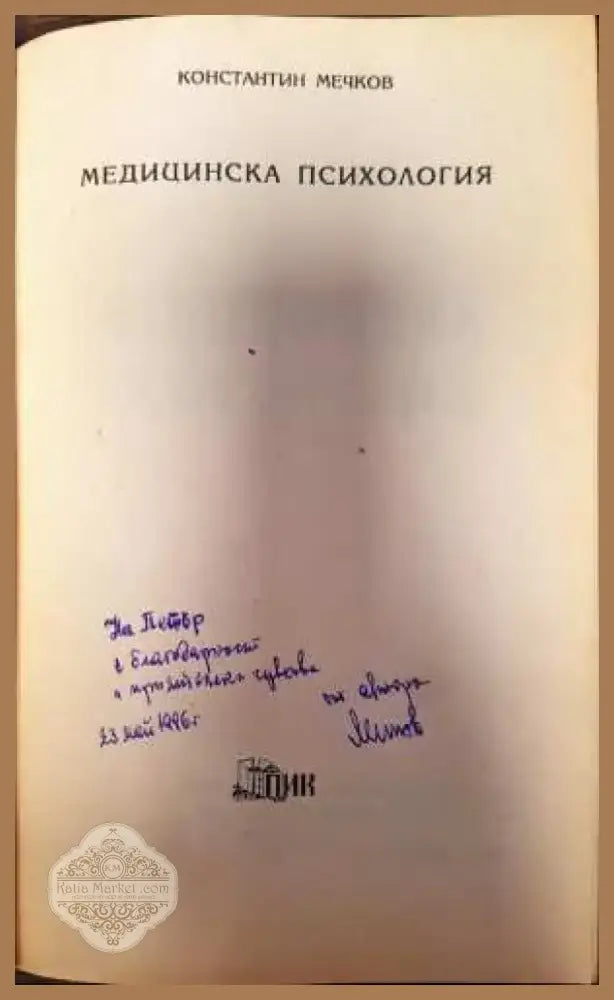 КОНСТАНТИН МЕЧКОВ
МЕДИЦИНСКА ПСИХОЛОГИЯ
На Петър
с благодарност
и приятелски чувства
от автора
23 май 1996 г
ПИК
KM
Katia Market .com